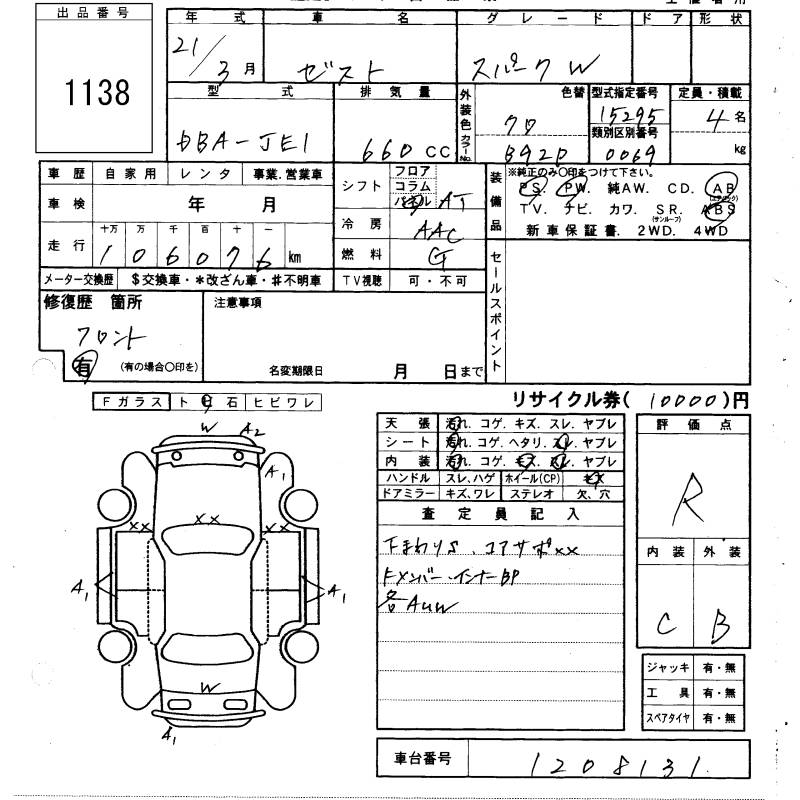 出品番号
1138
年式 車名 グレード ドア 形状
21/3月 ゼスト スパーク W
型式 排気量 外装色 色替 型式指定番号 定員・積載
DBA-JE1 660CC クロ 15295 4名
カラーNo. B92P 類別区別番号 0069 kg
車歴 自家用 レンタ 事業.営業車
車検 年 月
走行 十万 万 千 百 十 一
106076 km
メーター交換歴 $交換車・*改ざん車・#不明車
シフト フロア コラム パネル AT
冷房 AAC
燃料 G
TV視聴 可・不可
装備品 ※純正のみ〇印をつけて下さい。
PS. PW. 純AW. CD. AB (エアバック)
TV. ナビ. カワ. SR. ABS
(サンルーフ)
新車保証書. 2WD. 4WD
セールスポイント
修復歴 箇所
フロント
有 (有の場合〇印を)
注意事項
名変期限日 月 日まで
リサイクル券(10000)円
Fガラス ト石 ヒビワレ
天張 汚れ. コゲ. キズ. スレ. ヤブレ
シート 汚れ. コゲ. ヘタリ. スレ. ヤブレ
内装 汚れ. コゲ. キズ. スレ. ヤブレ
ハンドル スレ.ハゲ ホイール(CP) キズ
ドアミラー キズ.ワレ ステレオ 欠、穴
査定員記入
下まわりS. コアサポ××
Fメンバー.インナーBP
各AUW
評価点
R
内装 外装
C B
ジャッキ 有・無
工具 有・無
スペアタイヤ 有・無
車台番号 1208131
W A2
A1
×× ×× ××
A1 A1
W
A1